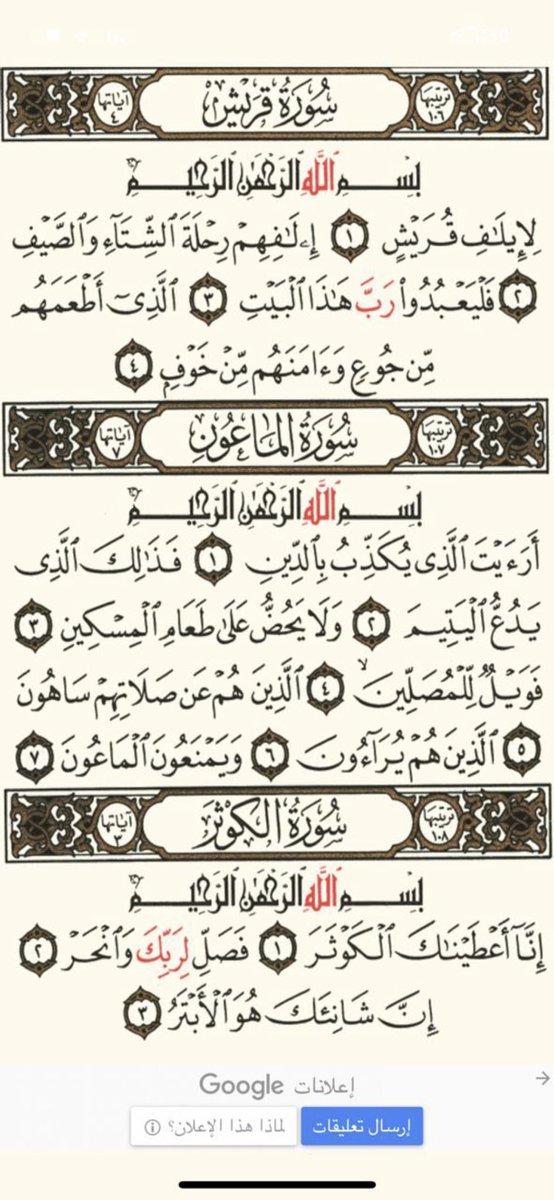 ترتيبها ١٠٦ سُورَةُ قُرَيْشٍ آياتها ٤
بِسْمِ ٱللَّهِ ٱلرَّحْمَٰنِ ٱلرَّحِيمِ
لِإِيلَٰفِ قُرَيْشٍ ١ إِۦلَٰفِهِمْ رِحْلَةَ ٱلشِّتَآءِ وَٱلصَّيْفِ
٢ فَلْيَعْبُدُوا۟ رَبَّ هَٰذَا ٱلْبَيْتِ ٣ ٱلَّذِىٓ أَطْعَمَهُم
مِّن جُوعٍ وَءَامَنَهُم مِّنْ خَوْفٍۭ ٤
ترتيبها ١٠٧ سُورَةُ المَاعُونِ آياتها ٧
بِسْمِ ٱللَّهِ ٱلرَّحْمَٰنِ ٱلرَّحِيمِ
أَرَءَيْتَ ٱلَّذِى يُكَذِّبُ بِٱلدِّينِ ١ فَذَٰلِكَ ٱلَّذِى
يَدُعُّ ٱلْيَتِيمَ ٢ وَلَا يَحُضُّ عَلَىٰ طَعَامِ ٱلْمِسْكِينِ ٣
فَوَيْلٌ لِّلْمُصَلِّينَ ۙ ٤ ٱلَّذِينَ هُمْ عَن صَلَاتِهِمْ سَاهُونَ
٥ ٱلَّذِينَ هُمْ يُرَآءُونَ ٦ وَيَمْنَعُونَ ٱلْمَاعُونَ ٧
ترتيبها ١٠٨ سُورَةُ الكَوْثَرَ آياتها ٣
بِسْمِ ٱللَّهِ ٱلرَّحْمَٰنِ ٱلرَّحِيمِ
إِنَّآ أَعْطَيْنَٰكَ ٱلْكَوْثَرَ ١ فَصَلِّ لِرَبِّكَ وَٱنْحَرْ ٢
إِنَّ شَانِئَكَ هُوَ ٱلْأَبْتَرُ ٣
إعلانات Google
إرسال تعليقات لماذا هذا الإعلان؟